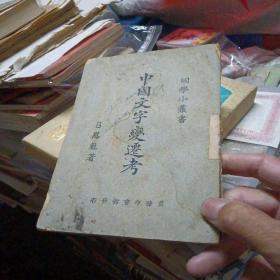 國學小叢書
中國文字變遷考
呂思勉著
商務印書館發行